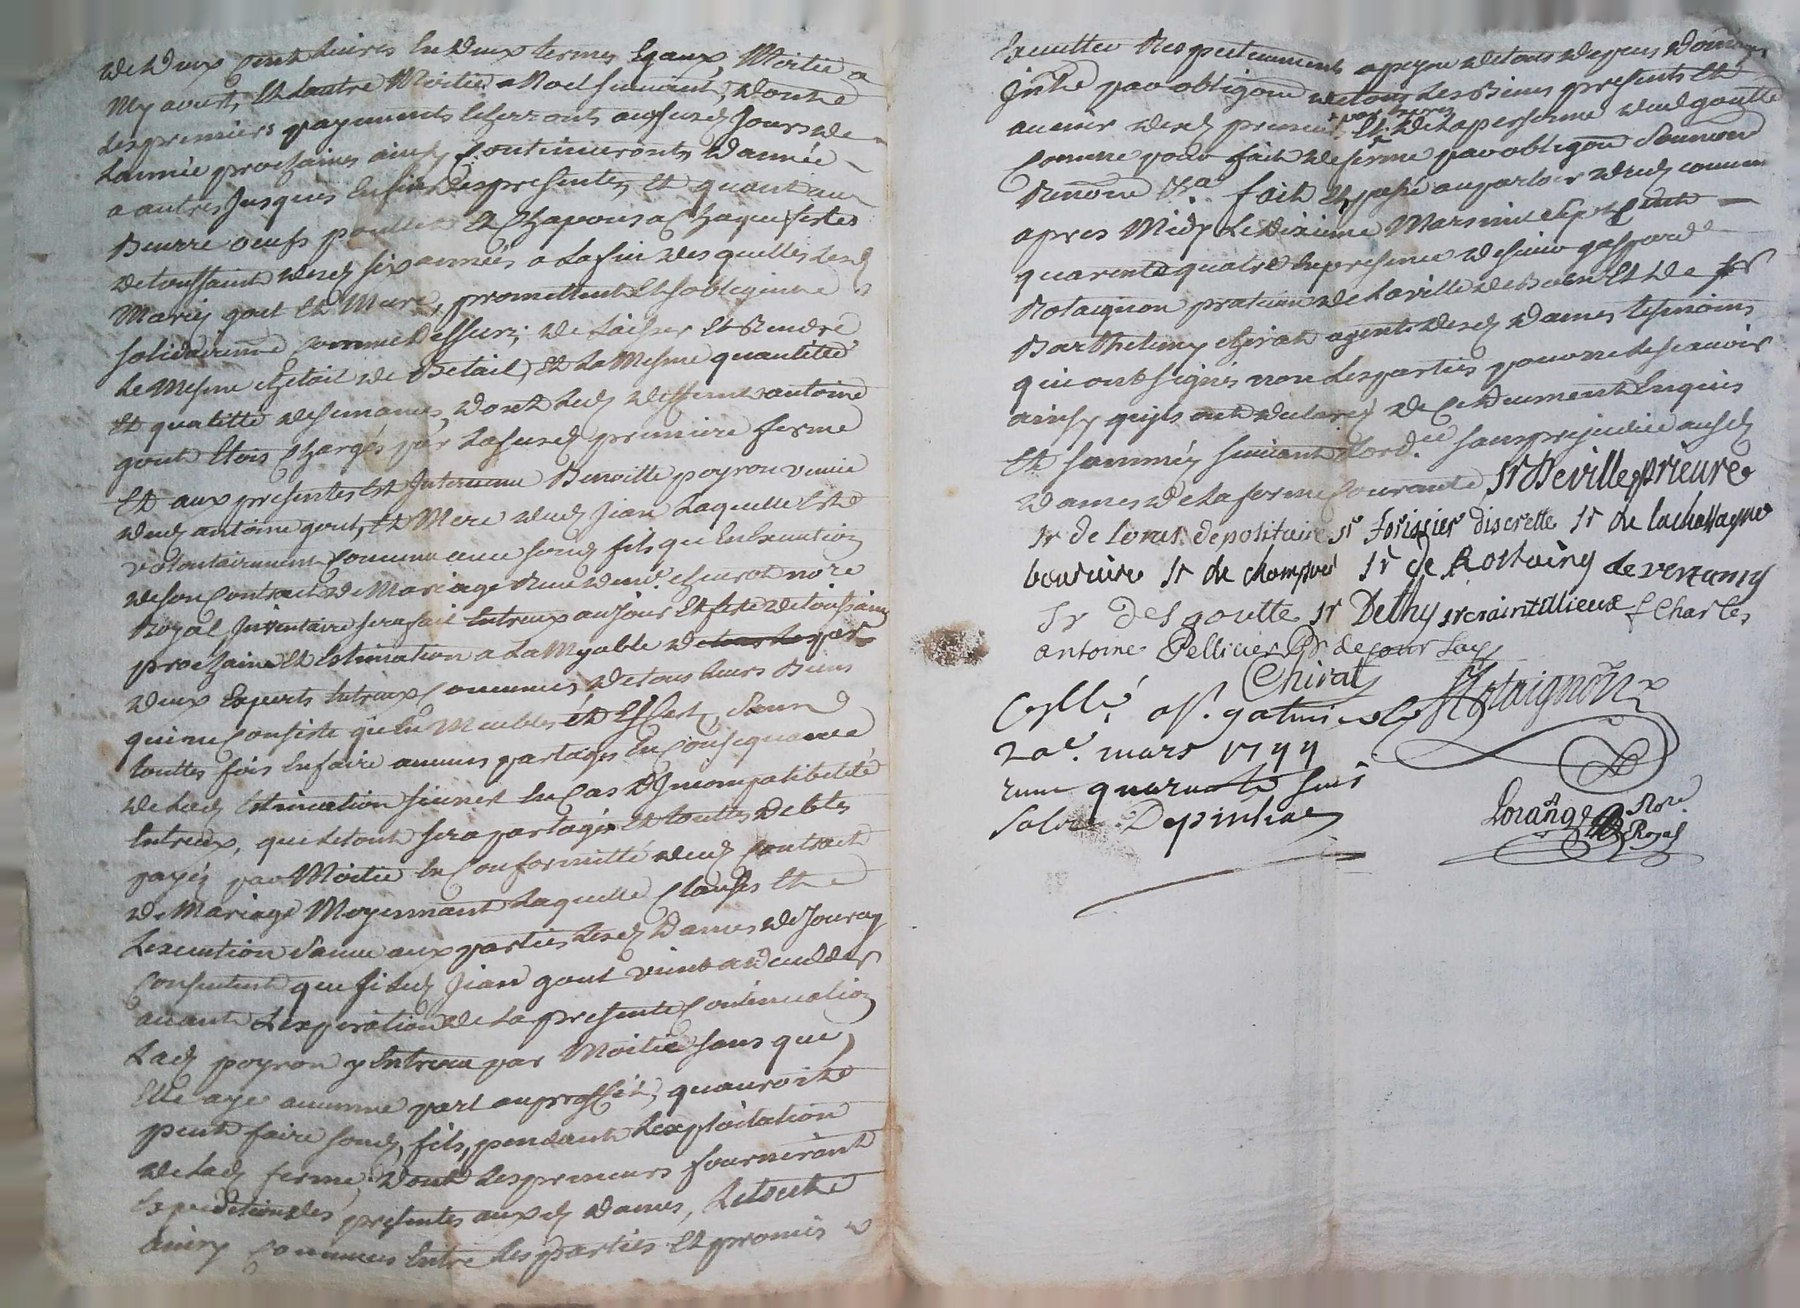 de deux cent livres en deux termes Egaux, Moitié a
My aoust, et Lautre Moitié a Noel suivant, dont
Les premiers payements Echerronts aususd. Jours de
Lannée prochaine ainsy Continueronts dannée
a autres Jusques En fin des presentes, et quant au
Beurre oeufs poulles et Chapons a Chaque festes
de toussaint desd. six années a La fin des quelles Lesd.
Mariés gout et Mere, promettent et sobligent
solidairem.t comme dessus, de Laisser et Rendre
Le Mesme Chetail de Betail, et La Mesme quantitté
et qualitté de semances, dont Led. deffunt antoine
gout Etois Chargés par La susd. premiere ferme
Et aux presentes Est Intervenue Benoitte poyron veuve
dud. antoine gout, et Mere dud. Jean Laquelle Et
volontairement Convenu avec soud. fils qu'en Execution
de son Contract de Mariage Receu dev.t no.re
Royal, Inventaire sera fait Entreux au jour et feste de toussaint
prochaine et Estimation a La Myable de
deux Experts Entreux Convenus, de tous Leurs Biens
qui ne Consiste qu'en Meubles et Effect, sans
touttes fois En faire aucuns partages En Consequance
de Lad. Estimation sinnon En Cas d'Incompatibilité
Entreux, que Letout sera partagés et touttes debtes
payés par Moitié En Conformitté dud. Contract
de Mariage Moyennant Laquelle Clauses Et
Lexecution dicelle aux parties Lesd. Dames de Joursey
Consentent que si Led. Jean gout vient a deceder
avant Lexpiration de La presente Continuation
Lad. poyron y Entrera par Moitié sans que
Elle aye aucune part au proffit, quauroit
peut faire soud. fils, pendant Lexploitation
de Lad. ferme, dont Les preneurs fourniront
Expeditions des presentes aux d. dames, Letout
ainsy Convenus Entre Les parties Et promis
Executter Respectivement a peyne de tous depens domages
Int.ts par obligaon de tous Les Biens presents Et
avenir desd. preneurs Et de La personne dud. goutte
Comme pour fait de ferme par obligaon
Renon.on &a. fait et passé au parloir dud. couvent
apres Midy Le dixieme Mars mil sept Cent
quarante quatre En presence de sieur gaspard
Rotaignon praticien de La ville de Boen Et de sr
Barthelemy Chirat agent desd. dames tesmoins
qui ont signés non Les parties pour ne Le scavoir
ainsy quils ont declarés de Ce deument Enquis
Et sommés suivant Lord.ce sans prejudice ausd.
dames de La ferme Courante Sr Deville prieure
Sr de Loras depositaire Sr Forissier discrette Sr de lachassagne
boursiere Sr de chompré Sr de Rostaing de vertamy
Sr Desgoutte Sr Dethy Sr craintillieux f Charles
antoine Pellicier
Chirat Rotaignon
Collé
20e. mars 1744
Recu quarante huit
sols Depinhac
Lorange Nore
Royal